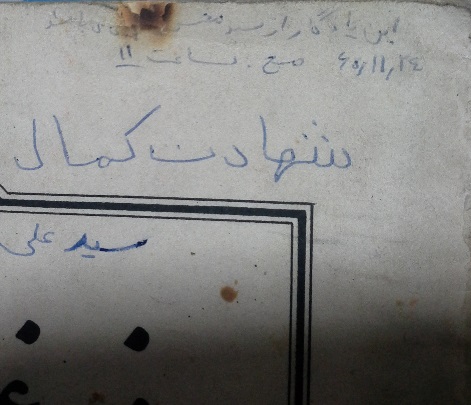 این یادگار از سید
۶۰٫۱۱٫۲۴ صبح. ساعت ۱۱
شهادت کمال
سید علی